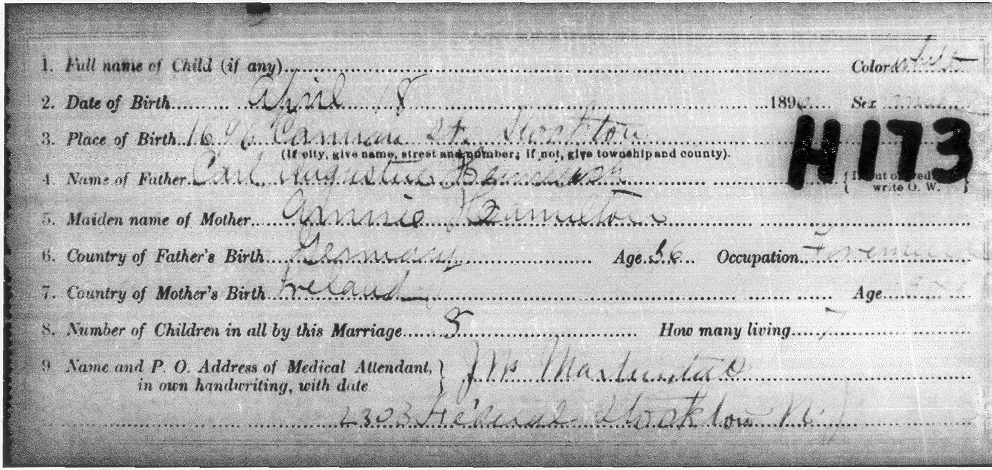 1. Full name of Child (if any) Color white
2. Date of Birth April 18 189 Sex
3. Place of Birth 1696 St. Stockton
(If city, give name, street and number; if not, give township and county).
H173
4. Name of Father Carl Augustus { If out of wedlock write O. W. }
5. Maiden name of Mother Annie Hamilton
6. Country of Father's Birth Germany Age 36 Occupation Foreman
7. Country of Mother's Birth Ireland Age
8. Number of Children in all by this Marriage 8 How many living 7
9 Name and P. O. Address of Medical Attendant, }
in own handwriting, with date
2303 Federal Stockton N. J.